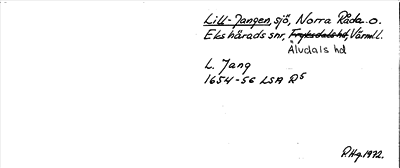 Lill-Jangen, sjö, Norra Råda o.
Ekshärads snr, Fryksdals hd, Värml.l.
Älvdals hd
L. Jang
1654-56 LSA R5
R.Hg. 1972.